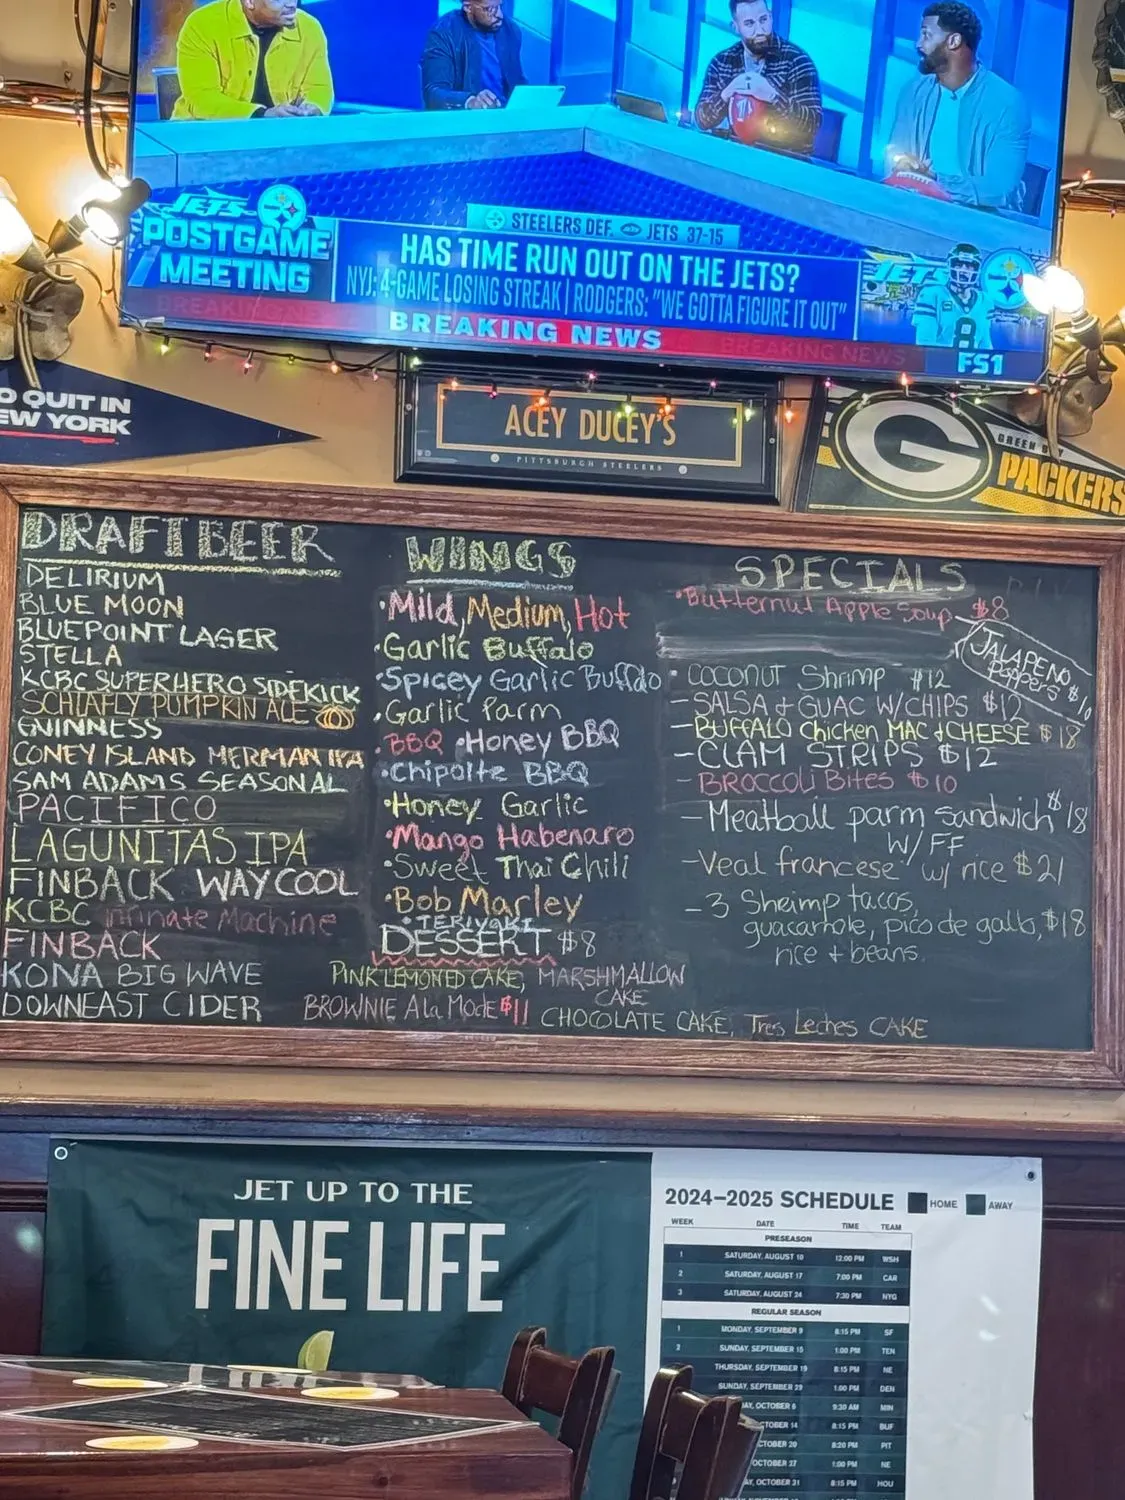 JETS
POSTGAME
MEETING
STEELERS DEF. JETS 37-15
HAS TIME RUN OUT ON THE JETS?
NYJ: 4-GAME LOSING STREAK | RODGERS: "WE GOTTA FIGURE IT OUT"
BREAKING NEWS
BREAKING NEWS
BREAKING NEWS
JETS
8
FS1
O QUIT IN
EW YORK
ACEY DUCEY'S
PITTSBURGH STEELERS
G
GREEN BAY
PACKERS
DRAFT BEER
DELIRIUM
BLUE MOON
BLUEPOINT LAGER
STELLA
KCBC SUPERHERO SIDEKICK
SCHLAFLY PUMPKIN ALE
GUINNESS
CONEY ISLAND MERMAN IPA
SAM ADAMS SEASONAL
PACIFICO
LAGUNITAS IPA
FINBACK WAYCOOL
KCBC infinate Machine
FINBACK
KONA BIG WAVE
DOWNEAST CIDER
WINGS
•Mild, Medium, Hot
•Garlic Buffalo
•Spicey Garlic Buffalo
•Garlic Parm
•BBQ •Honey BBQ
•Chipolte BBQ
•Honey Garlic
•Mango Habenaro
•Sweet Thai Chili
•Bob Marley
•TERIYAKI
DESSERT $8
PINK LEMONED CAKE, MARSHMALLOW
CAKE
BROWNIE Ala Mode $11 CHOCOLATE CAKE, Tres Leches CAKE
SPECIALS
•Butternut Apple Soup $8
JALAPENO
Poppers $10
• COCONUT Shrimp $12
- SALSA & GUAC W/CHIPS $12
- BUFFALO Chicken MAC & CHEESE $18
- CLAM STRIPS $12
- BROCCOLI Bites $10
- Meatball parm sandwich $18
W/ FF
- Veal francese w/ rice $21
- 3 Shrimp tacos,
guacamole, pico de gallo, $18
rice + beans.
JET UP TO THE
FINE LIFE
2024–2025 SCHEDULE HOME AWAY
WEEK DATE TIME TEAM
PRESEASON
1 SATURDAY, AUGUST 10 12:00 PM WSH
2 SATURDAY, AUGUST 17 7:00 PM CAR
3 SATURDAY, AUGUST 24 7:30 PM NYG
REGULAR SEASON
1 MONDAY, SEPTEMBER 9 8:15 PM SF
2 SUNDAY, SEPTEMBER 15 1:00 PM TEN
THURSDAY, SEPTEMBER 19 8:15 PM NE
SUNDAY, SEPTEMBER 29 1:00 PM DEN
AY, OCTOBER 6 9:30 AM MIN
CTOBER 14 8:15 PM BUF
CTOBER 20 8:20 PM PIT
OCTOBER 27 1:00 PM NE
AY, OCTOBER 31 8:15 PM HOU